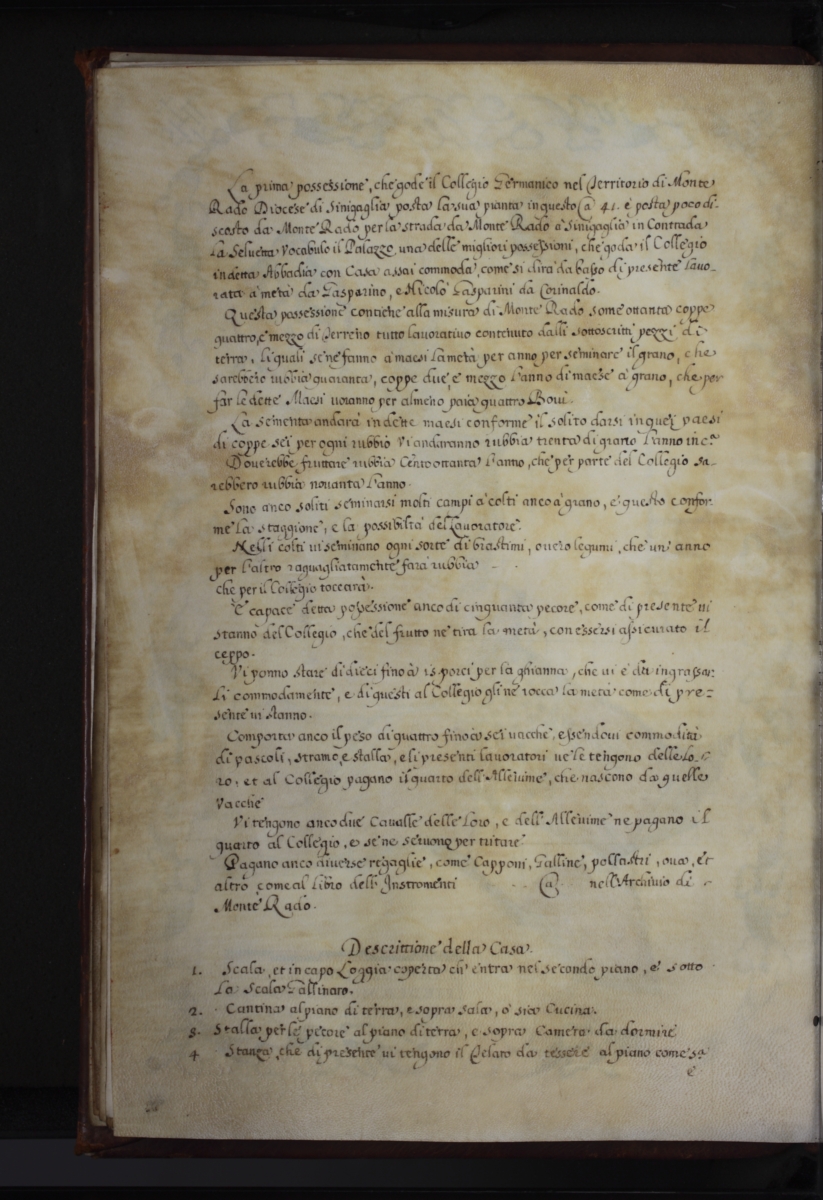 La prima possessione, che gode il Collegio Germanico nel Territorio di Monte
Rado Diocese di Sinigaglia posta la sua pianta in questo @ 41. è posta poco di-
scosto da Monte Rado per la strada da Monte Rado à Sinigaglia in Contrada
La Selvetta Vocabulo il Palazzo, una delle migliori possessioni, che goda il Collegio
in detta Abbadia con Casa assai commoda, come si dirà da basso di presente lavo-
rata à metà da Gasparino, e Nicolo Gasparini da Corinaldo.
Questa possessione contiene alla misura di Monte Rado some ottanta coppe
quattro, e mezzo di Terreno tutto lavorativo contenuto dalli sottoscritti pezzi di
terra, li quali se ne fanno à maesi la metà per anno per seminare il grano, che
sarebbero rubbia quaranta, coppe due, e mezzo l'anno di maese à grano, che per
far le dette Maesi voranno per almeno para quattro Bovi.
La sementa andarà in dette maesi conforme il solito darsi in quei paesi
di coppe sei per ogni rubbio vi andaranno rubbia trenta di grano l'anno inc.ª
Doverebbe fruttare rubbia Cento ottanta l'anno, che per parte del Collegio sa-
rebbero rubbia novanta l'anno.
Sono anco soliti seminarsi molti campi à colti anco à grano, e questo confor-
me la staggione, e la possibiltà del Lavoratore.
Nelli colti vi seminano ogni sorte di biastimi, overo legumi, che un' anno
per l'altro raguagliatamente farà rubbia - .
che per il Collegio toccarà.
E' capace detta possessione anco di cinquanta pecore, come di presente vi
stanno del Collegio, che del frutto ne tira la metà, con essersi assicurato il
ceppo.
Vi ponno stare di dieci fino à 15 porci per la ghianna, che vi è da ingrassar-
li commodamente, e di questi al Collegio gli ne tocca la metà come di pre-
sente vi stanno.
Comporta anco il peso di quattro fino à sei vacche, essendovi commodità
di pascoli, strame, e stalla, e li presenti lavoratori ve le tengono delle Lo-
ro, et al Collegio pagano il quarto dell'Allevime, che nascono da quelle
Vacche
Vi tengono anco due Cavalle delle loro, e dell'Allevime ne pagano il
quarto al Collegio, e se ne servono per tritare
Pagano anco diverse regaglie, come Capponi, Galline, pollastri, ova, et
altro come al Libro dell'Instromenti @ nell'Archivio di
Monte Rado.
Descrittione della Casa.
1. Scala, et in capo Loggia coperta ch'entra nel secondo piano, e sotto
La Scala Gallinaro.
2. Cantina al piano di terra, e sopra sala, ò sia Cucina.
3. Stalla per le pecore al piano di terra, e sopra Camera da dormire
4. Stanza, che di presente vi tengono il Telaro da tessere al piano come sa.
e